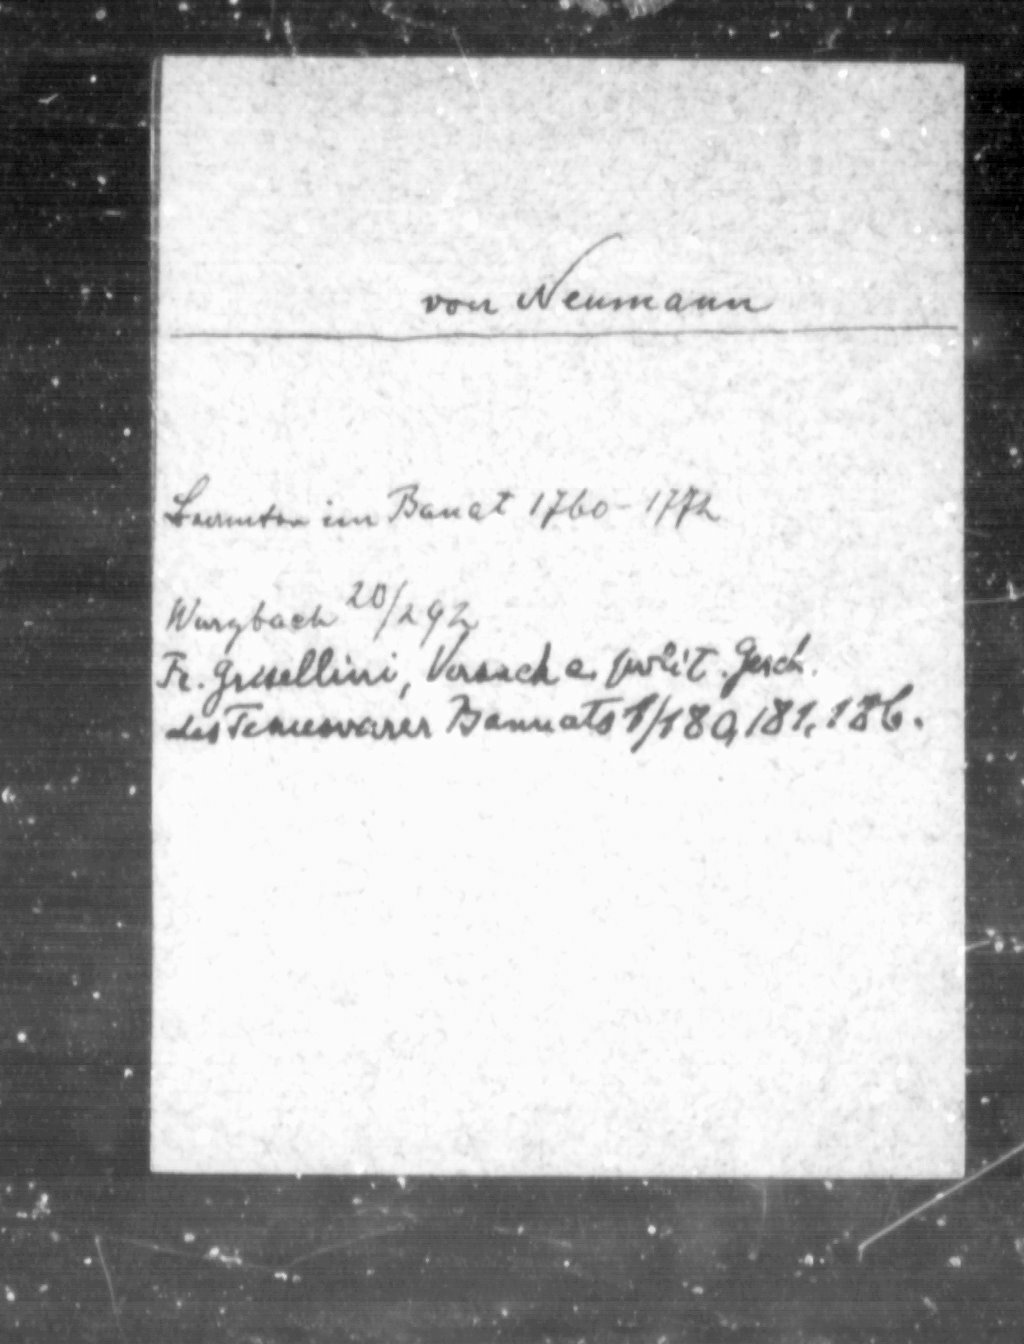 von Neumann
Beamter im Banat 1760-1772
Wurzbach 20/292
Fr. Grisellini, Versuch e. polit. Gesch.
des Temesvarer Bannats 1/180, 181, 186.